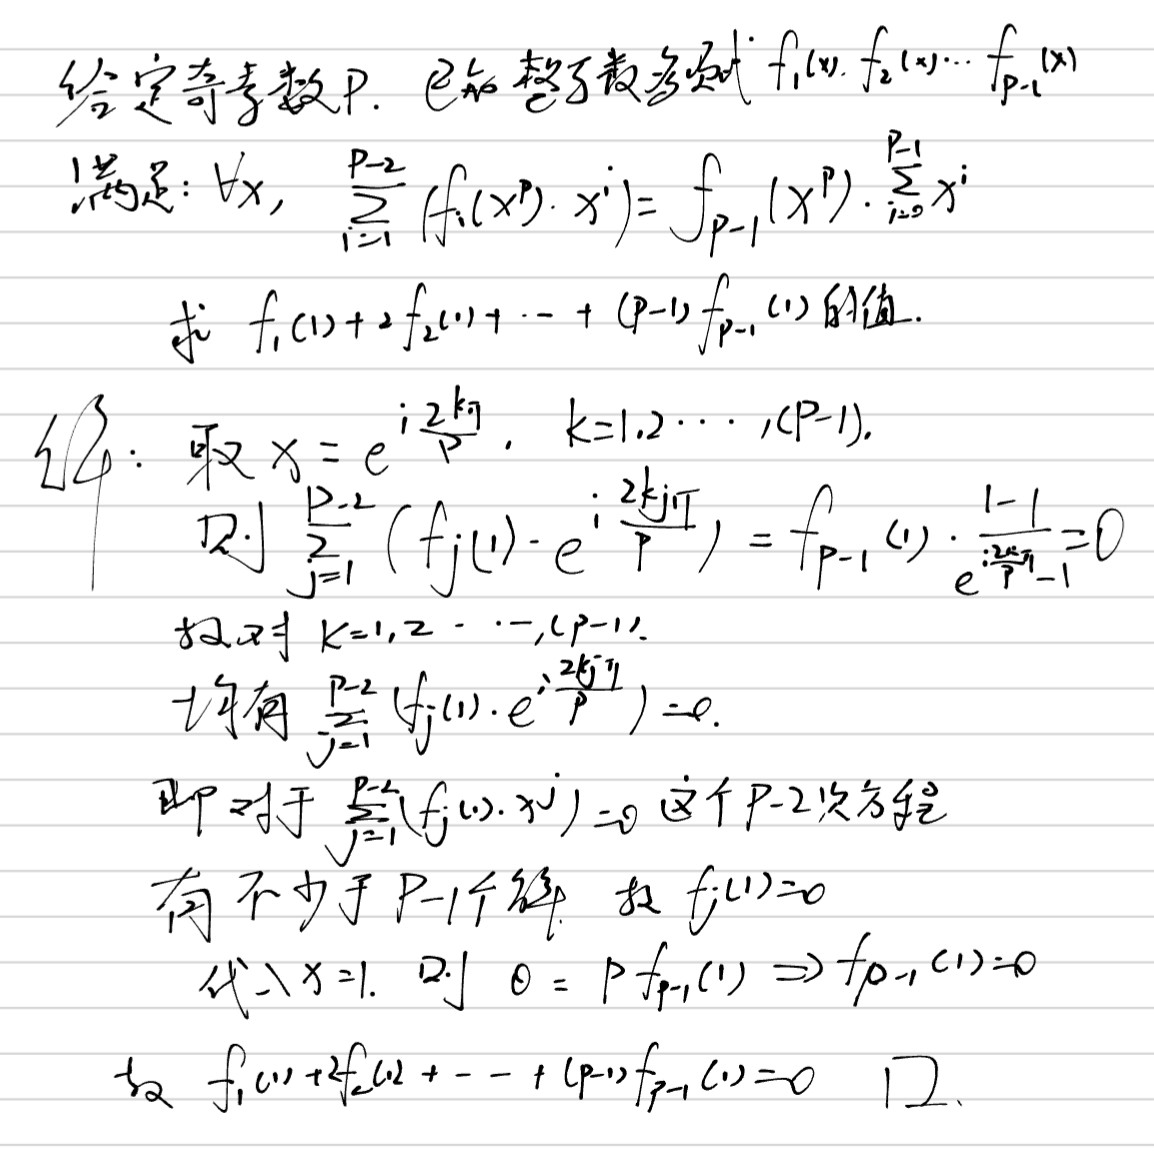 给定奇素数P. 已知整系数多项式 f₁(x). f₂(x)... f_{p-1}(x)
满足: ∀x, \sum_{i=1}^{p-2} (f_i(x^p)·x^i) = f_{p-1}(x^p)·\sum_{i=0}^{p-1} x^i
求 f₁(1)+2f₂(1)+···+(p-1)f_{p-1}(1) 的值.
解: 取 x = e^{i\frac{2kπ}{p}}, k=1,2····,(p-1).
则 \sum_{j=1}^{p-2} (f_j(1)·e^{i\frac{2kjπ}{p}}) = f_{p-1}(1)·\frac{1-1}{e^{i\frac{2kπ}{p}}-1}=0
故对 k=1,2···,(p-1).
均有 \sum_{j=1}^{p-2} (f_j(1)·e^{i\frac{2kjπ}{p}})=0.
即对于 \sum_{j=1}^{p-2} (f_j(1)·x^j)=0 这个P-2次方程
有不少于P-1个解. 故 f_j(1)=0
代入x=1. 则 0 = p f_{p-1}(1) ⇒ f_{p-1}(1)=0
故 f₁(1)+2f₂(1)+---+(p-1)f_{p-1}(1)=0 □.